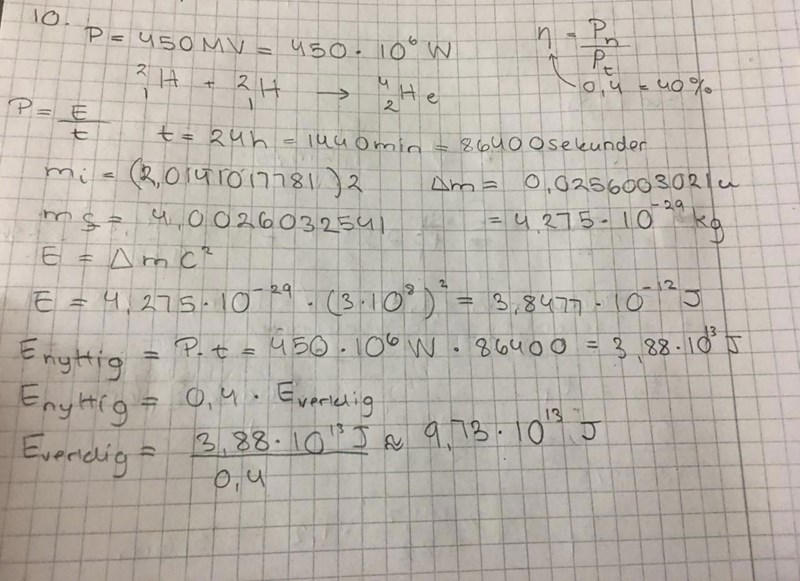 10.
P = 450MV = 450 · 10⁶ W
η = Pn / Pt
0,4 = 40%
²₁H + ²₁H → ⁴₂He
P = E / t t = 24h = 1440min = 86400sekunder
mi = (2,0141017781)2 Δm = 0,0256003021u
ms = 4,0026032541 = 4,275 · 10⁻²⁹ kg
E = Δmc²
E = 4,275 · 10⁻²⁹ · (3 · 10⁸)² = 3,8477 · 10⁻¹² J
Enyttig = P · t = 450 · 10⁶ W · 86400 = 3,88 · 10¹³ J
Enyttig = 0,4 · Everklig
Everklig = 3,88 · 10¹³ J / 0,4 ≈ 9,73 · 10¹³ J